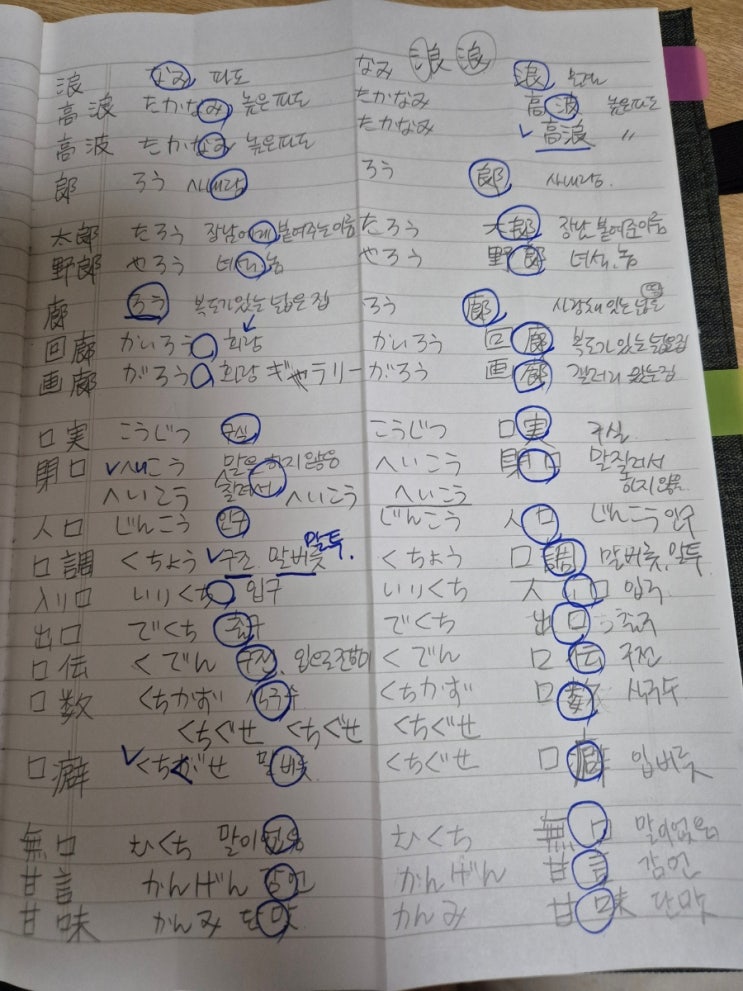 なみ 浪 浪
浪 なみ 파도 浪
高浪 たかなみ 높은파도 たかなみ 高波 높은파도
高波 たかなみ 높은파도 たかなみ 高浪 〃
郎 ろう 사내랑 ろう 郎 사내랑
太郎 たろう 장남에게 붙여주는이름 たろう 太郎 장남 붙여준이름
野郎 やろう 녀석,놈 やろう 野郎 녀석,놈
廊 ろう 복도가있는 넓은집 ろう 廊
回廊 かいろう 회랑 かいろう 回廊 복도가있는넓은집
画廊 がろう 화랑 ギャラリー がろう 画廊
口実 こうじつ 구실 こうじつ 口実 구실
閉口 へいこう 말을 하지않음 へいこう 閉口 말질려서
へいこう 질려서 へいこう へいこう 하지않음
人口 じんこう 인구 じんこう 人口 じんこう 인구
말투.
口調 くちょう 구조 말버릇 くちょう 口調 말버릇,말투.
入り口 いりくち 입구 いりくち 入口 입구
出口 でくち 출구 でくち 出口 출구
口伝 くでん 구전, くでん 口伝 구전
口数 くちかず 식구수 くちかず 口数 식구수
くちぐせ くちぐせ くちぐせ
口癖 くちぐせ 말버릇 くちぐせ 口癖 입버릇
無口 むくち 말이없음 むくち 無口 말이없음
甘言 かんげん 감언 かんげん 甘言 감언
甘味 かんみ 단맛 かんみ 甘味 단맛